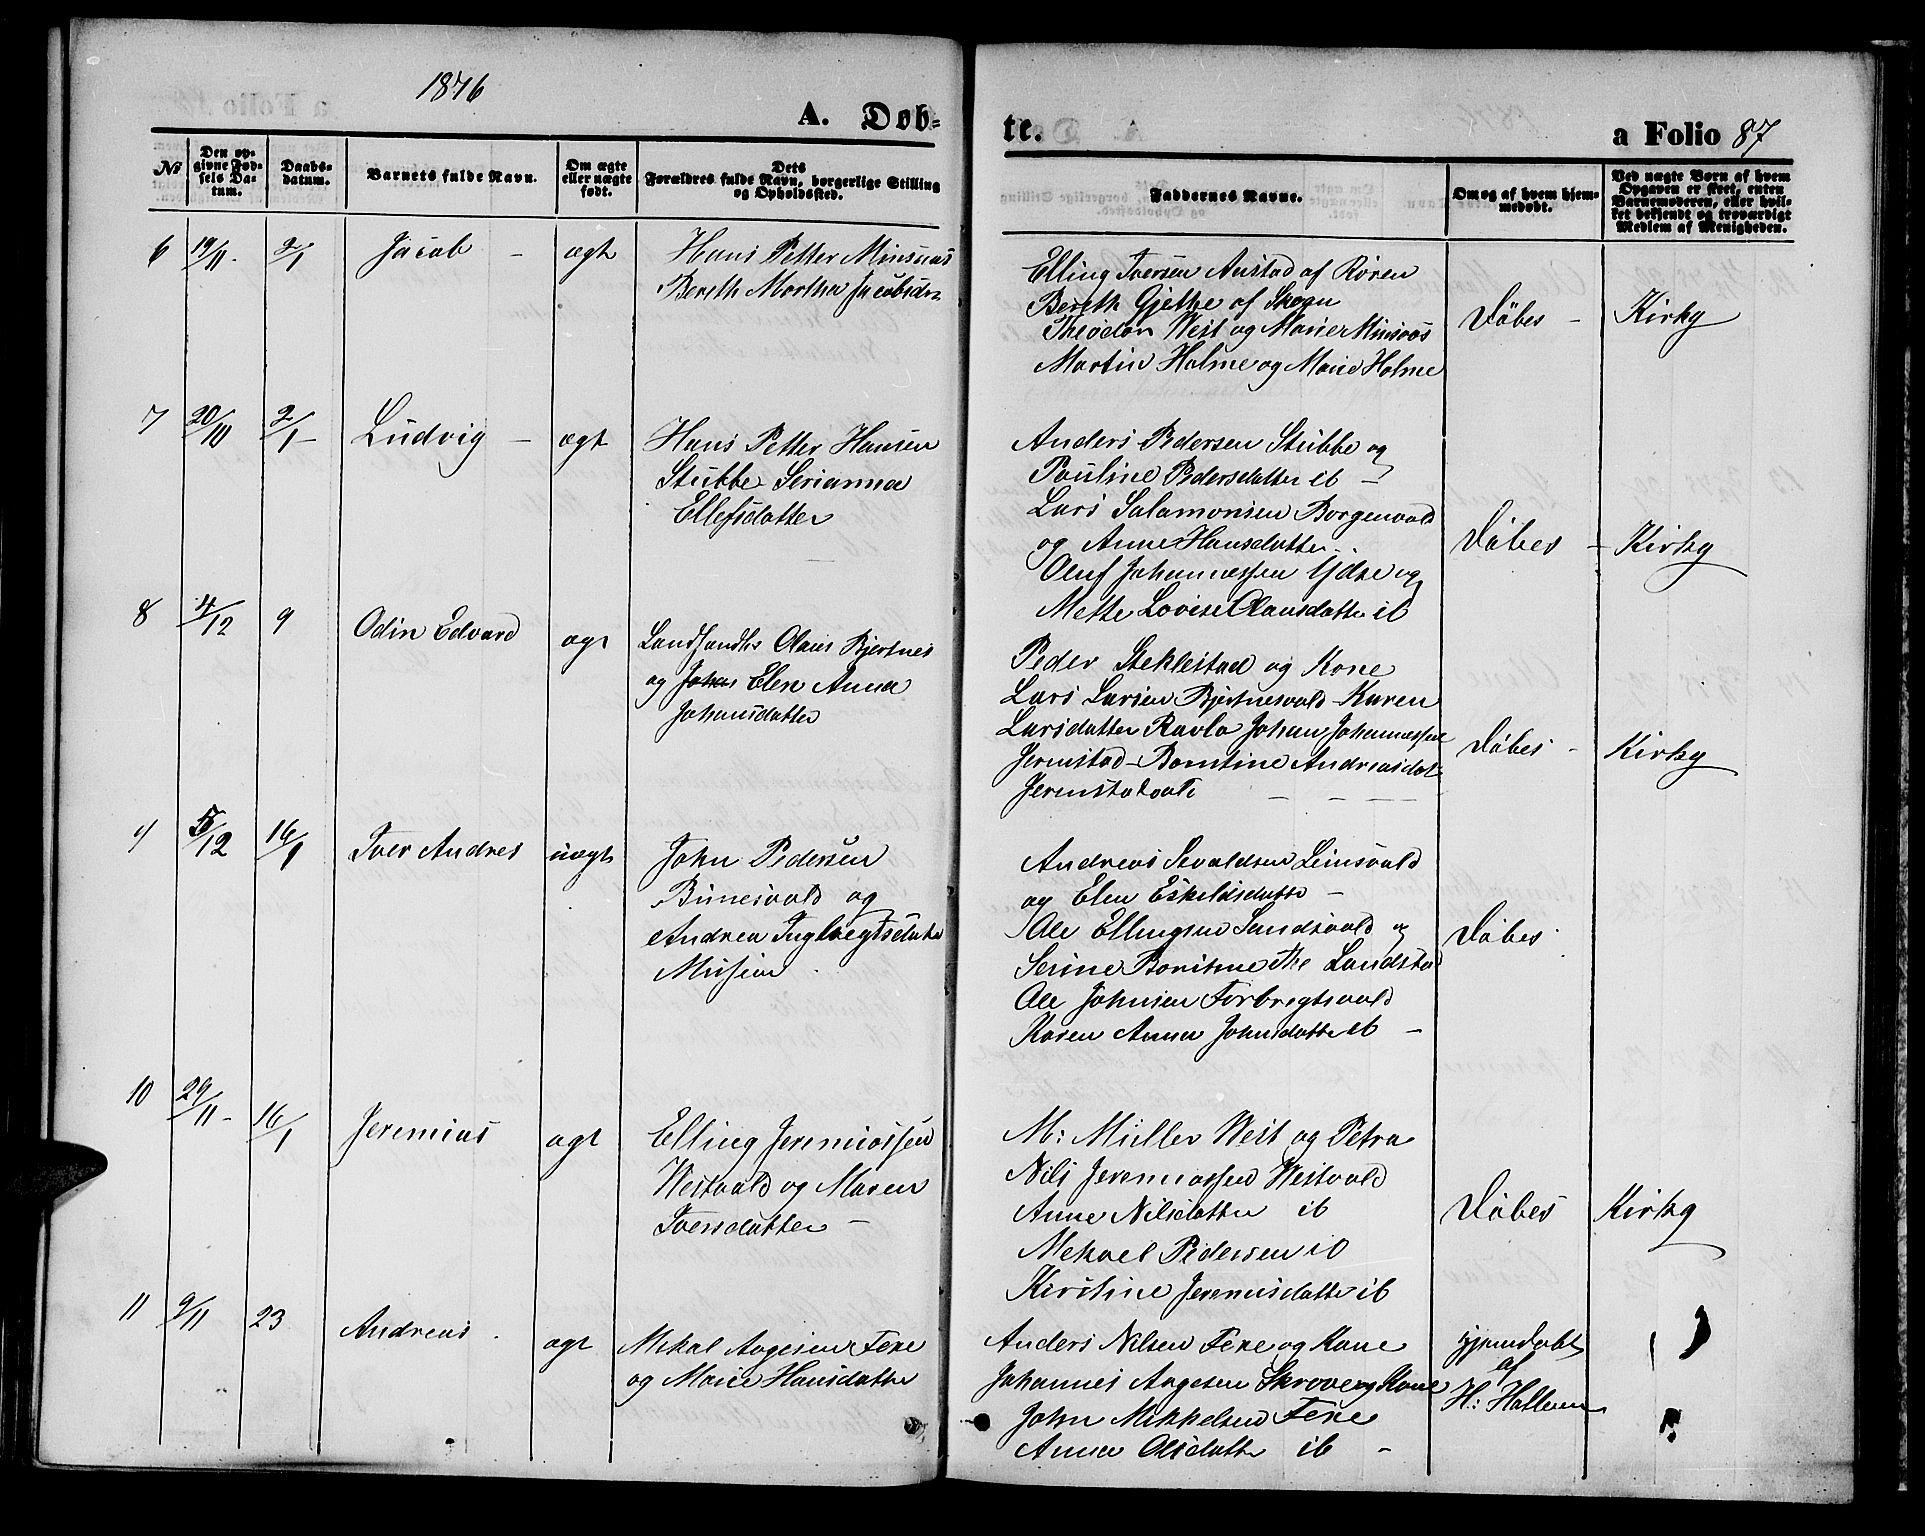 1876
A. Døb-
te.
a Folio 87
No
Den op-
givne Fød-
sels Da-
tum.
Daabs-
datum.
Barnets fulde Navn.
Om ægte
eller uægte
født.
Dets
Forældres fulde Navn, borgerlige Stilling
og Opholdssted.
Faddernes Navne.
Om og af hvem hjem-
medøbt.
Ved uægte Børn af hvem
Opgaven er skeet, enten
Barnemoderen, eller hvil-
ket bekjendt og troværdigt
Medlem af Menigheden.
6 19/11 2/1 Jacob - ægte
Hans Petter Minsaas
Bereth Martha Jacobsdr
Elling Iversen Austad af Røren
Bereth Gjethe af Skogn
Theodor West og Marie Minsaas
Martin Holme og Marie Holme
Døbes - Kirky
7 20/10 2/1 Ludvig - ægt
Hans Petter Hansen
Stubbe Serianna
Ellefsdatter
Anders Pedersen Stubbe og
Pauline Pedersdatter ib -
Lars Salamonsen Borgenvald
og Anne Hansdatter
Oluf Johannessen Ydse og
Mette Lovise Olausdatter ib
Døbes - Kirky
8 4/12 9 Odin Edvard ægt
Landhandler Olaus Bjertnes
og Johan Elen Anna
Johansdatter
Peder Steklestad og Kone
Lars Larsen Bjertnesvald Karen
Larsdatter Ravlo Johan Johannessen
Jermstad - Borntine Andreasdat
Jermstadvald
Døbes - Kirky
9 5/12 16/1 Iver Andres uægt
John Pedersen
Bunesvald og
Andrea Ingebregtsdatter
Musum
Andreas Sevaldsen Leinsvald
og Elen Eskeldsdatter -
Ole Ellingsen Sundsvald og
Serine Bontine The Landstad
Ole Johnsen Forbregtsvald
Karen Anna Johnsdatter ib -
Døbes
10 29/11 16/1 Jeremias ægt
Elling Jeremiassen
Westvald og Maren
Iversdatter -
M: Müller West og Petra
Nils Jeremiassen Westvald
Anne Nilsdatter ib
Mekael Pedersen ib
Kirstine Jeremisdatter ib
Døbes Kirky
11 9/11 23 Andreas ægt
Mekal Aagesen Fexe
og Marie Hansdatter
Anders Nilsen Fexe og Kone
Johannes Aagesen Skrove og Kone
John Mikkelsen Fexe
Anna Olsdatter ib -
hjemdøbt
af
H: Hallem